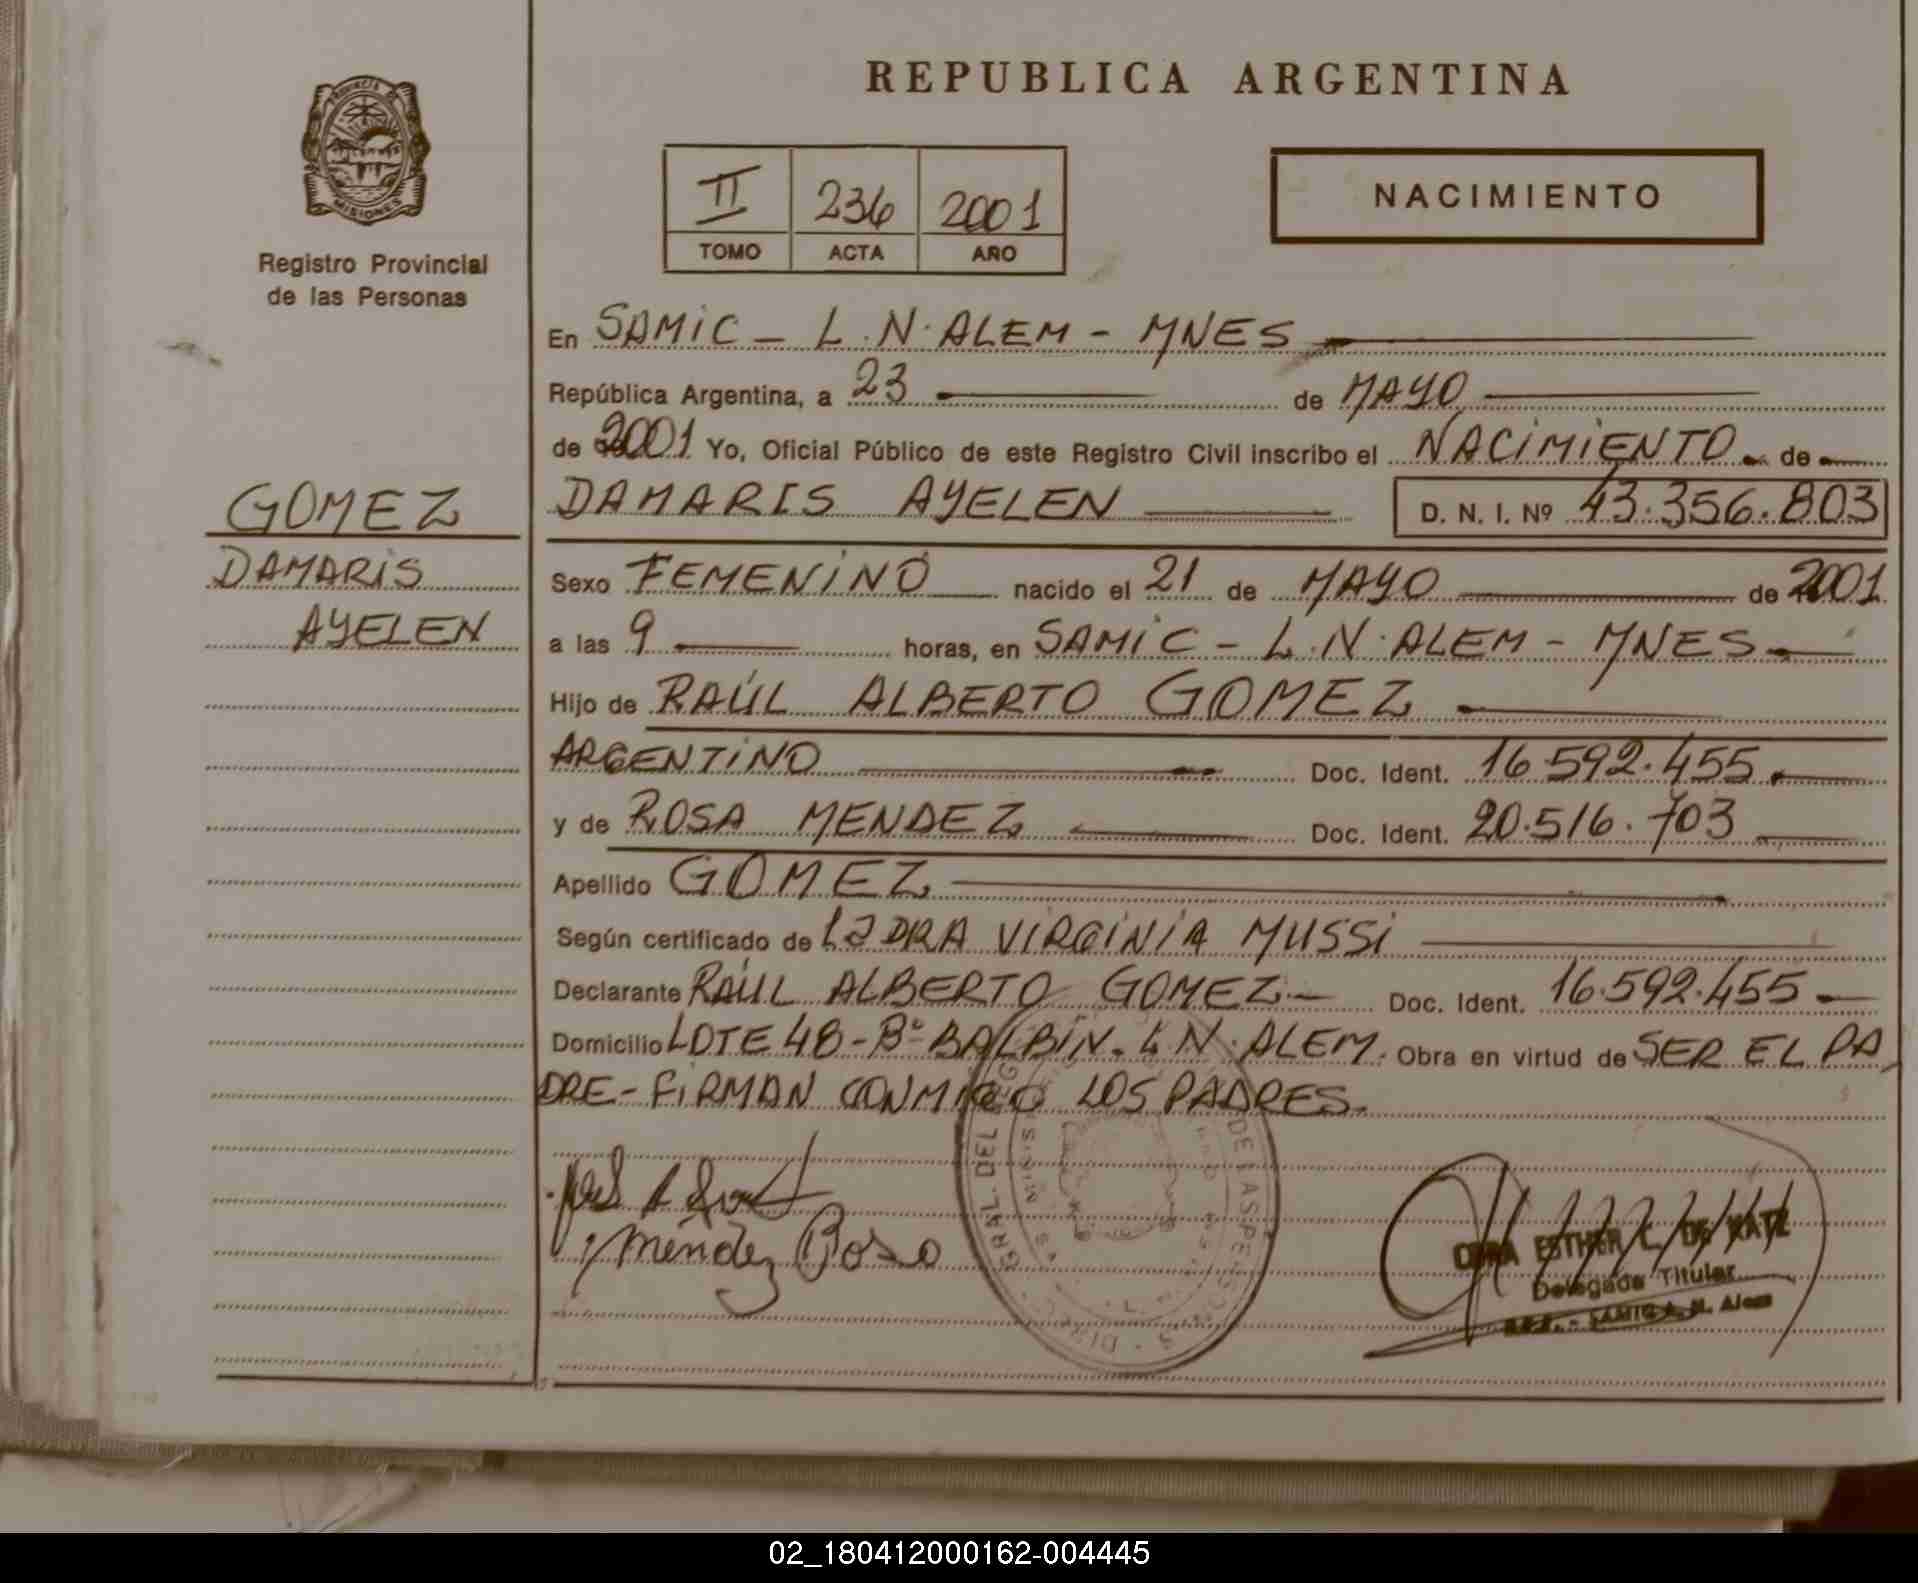 REPUBLICA ARGENTINA
PROVINCIA DE
MISIONES
Registro Provincial
de las Personas
II 236 2001
TOMO ACTA AÑO
NACIMIENTO
En SAMIC - L.N. ALEM - MNES
República Argentina, a 23 de MAYO
de 2001 Yo, Oficial Público de este Registro Civil inscribo el NACIMIENTO de
DAMARIS AYELEN D. N. I. Nº 43.356.803
GOMEZ
DAMARIS
AYELEN
Sexo FEMENINO nacido el 21 de MAYO de 2001
a las 9 horas, en SAMIC - L.N. ALEM - MNES
Hijo de RAÚL ALBERTO GOMEZ
ARGENTINO Doc. Ident. 16.592.455
y de ROSA MENDEZ Doc. Ident. 20.516.703
Apellido GOMEZ
Según certificado de la DRA VIRGINIA MUSSI
Declarante RAÚL ALBERTO GOMEZ Doc. Ident. 16.592.455
Domicilio LOTE 48 - Bº BALBIN. L.N. ALEM. Obra en virtud de SER EL PA
DRE - FIRMAN CONMIGO LOS PADRES.
Méndez Rosa
ESTHER L. DE KATZ
Delegada Titular
SAMIC L. N. Alem
02_180412000162-004445